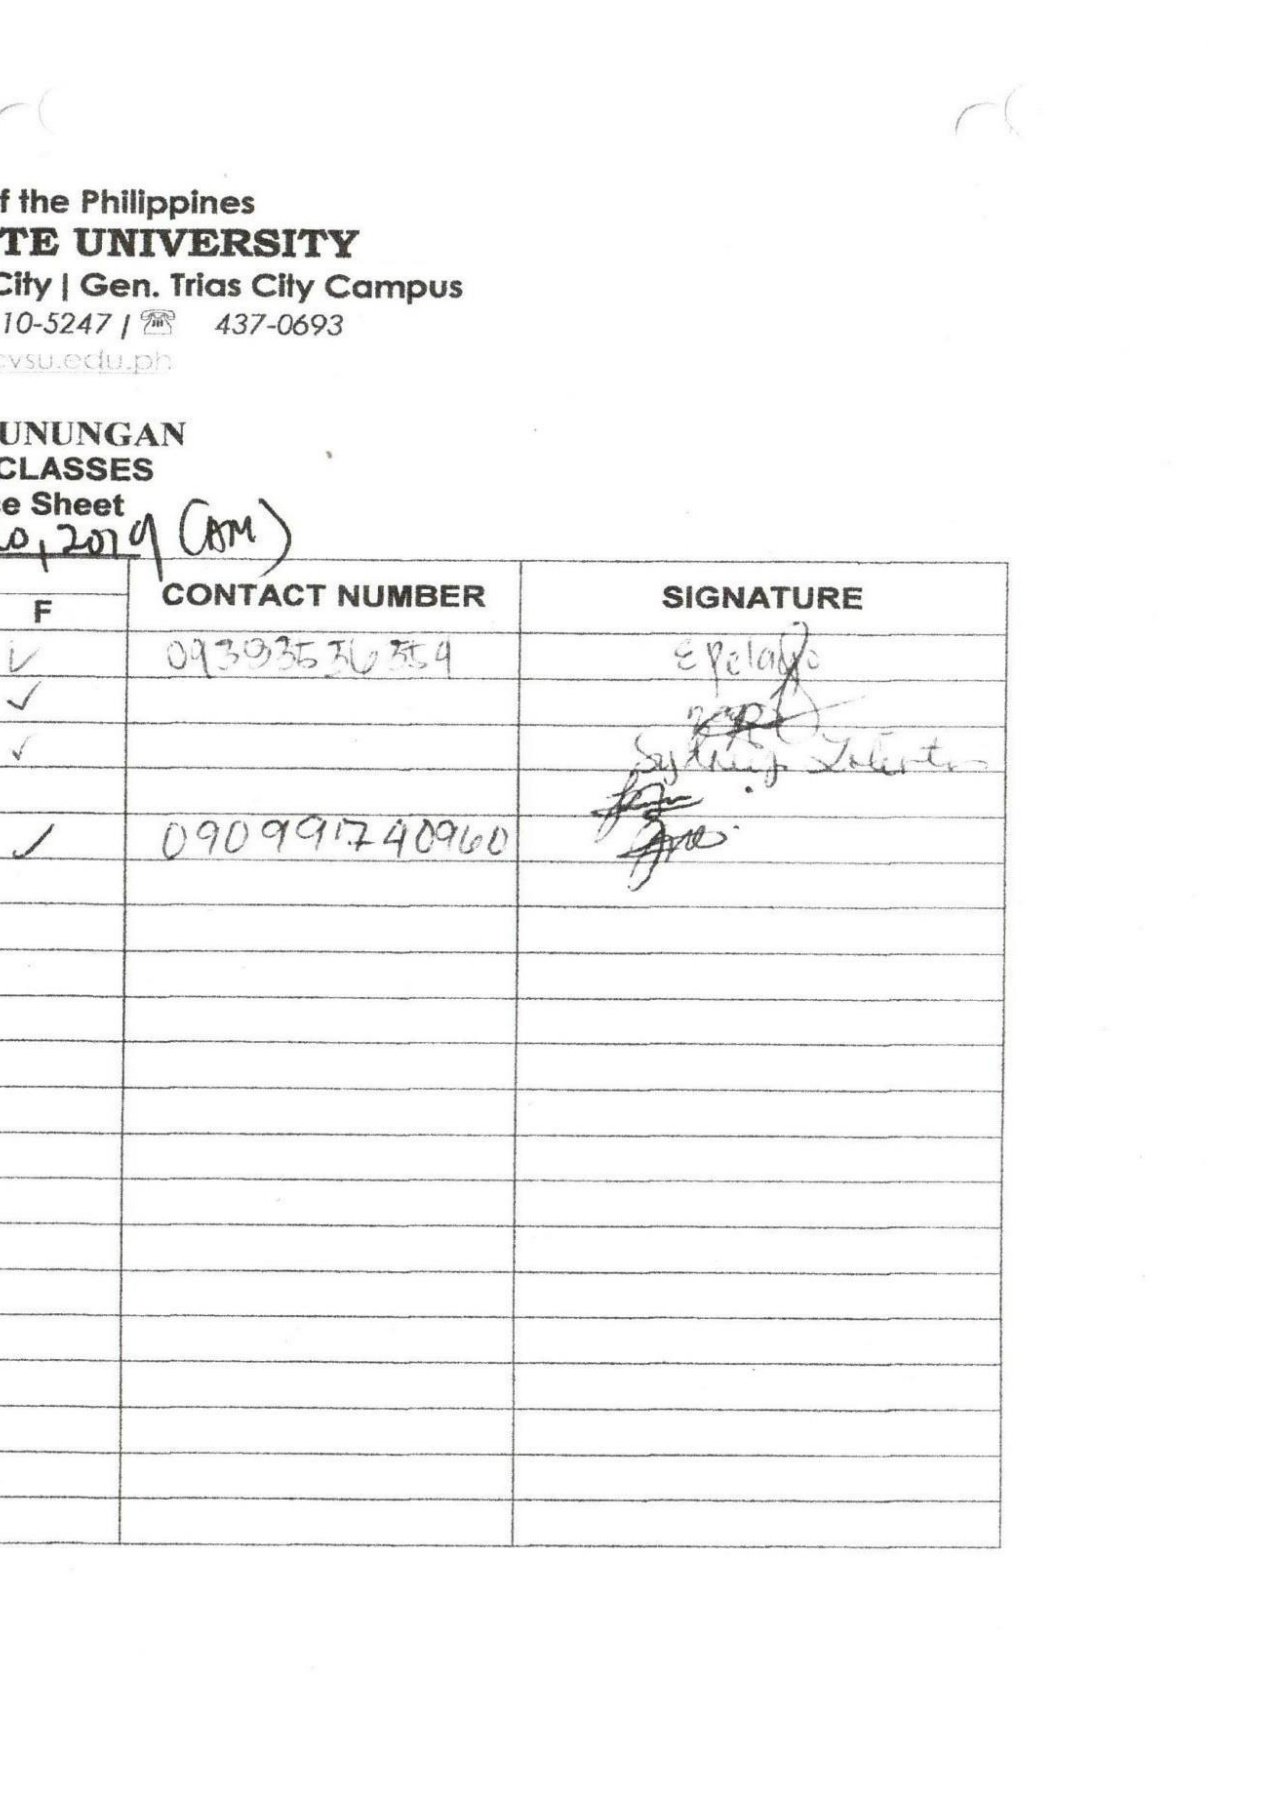 f the Philippines
TE UNIVERSITY
City | Gen. Trias City Campus
10-5247 / ☏ 437-0693
cvsu.edu.ph
UNUNGAN
CLASSES
e Sheet
20, 2019 (AM)
F CONTACT NUMBER SIGNATURE
✓ 09393536359 E Pelayo
✓
✓ Sydney
✓ 090991740960